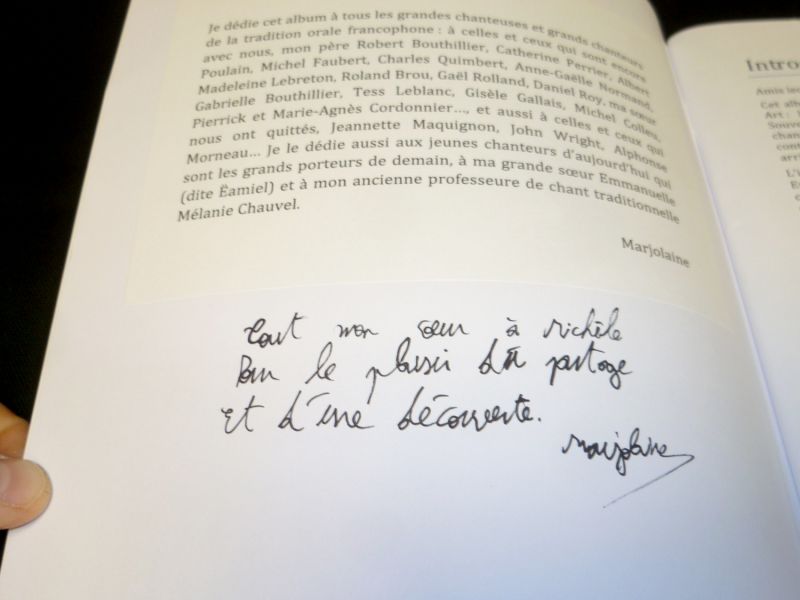 Je dédie cet album à tous les grandes chanteuses et grands chanteurs
de la tradition orale francophone : à celles et ceux qui sont encore
avec nous, mon père Robert Bouthillier, Catherine Perrier, Albert
Poulain, Michel Faubert, Charles Quimbert, Anne-Gaëlle Normand,
Madeleine Lebreton, Roland Brou, Gaël Rolland, Daniel Roy, ma sœur
Gabrielle Bouthillier, Tess Leblanc, Gisèle Gallais, Michel Colleu,
Pierrick et Marie-Agnès Cordonnier..., et aussi à celles et ceux qui
nous ont quittés, Jeannette Maquignon, John Wright, Alphonse
Morneau... Je le dédie aussi aux jeunes chanteurs d'aujourd'hui qui
sont les grands porteurs de demain, à ma grande sœur Emmanuelle
(dite Ëamiel) et à mon ancienne professeure de chant traditionnelle
Mélanie Chauvel.
Marjolaine
Tout mon cœur à Michèle
Pour le plaisir du partage
Et d'une découverte.
Marjolaine
Intro
Amis lec
Cet alb
Art :
Souve
chan
cont
arri
L'i